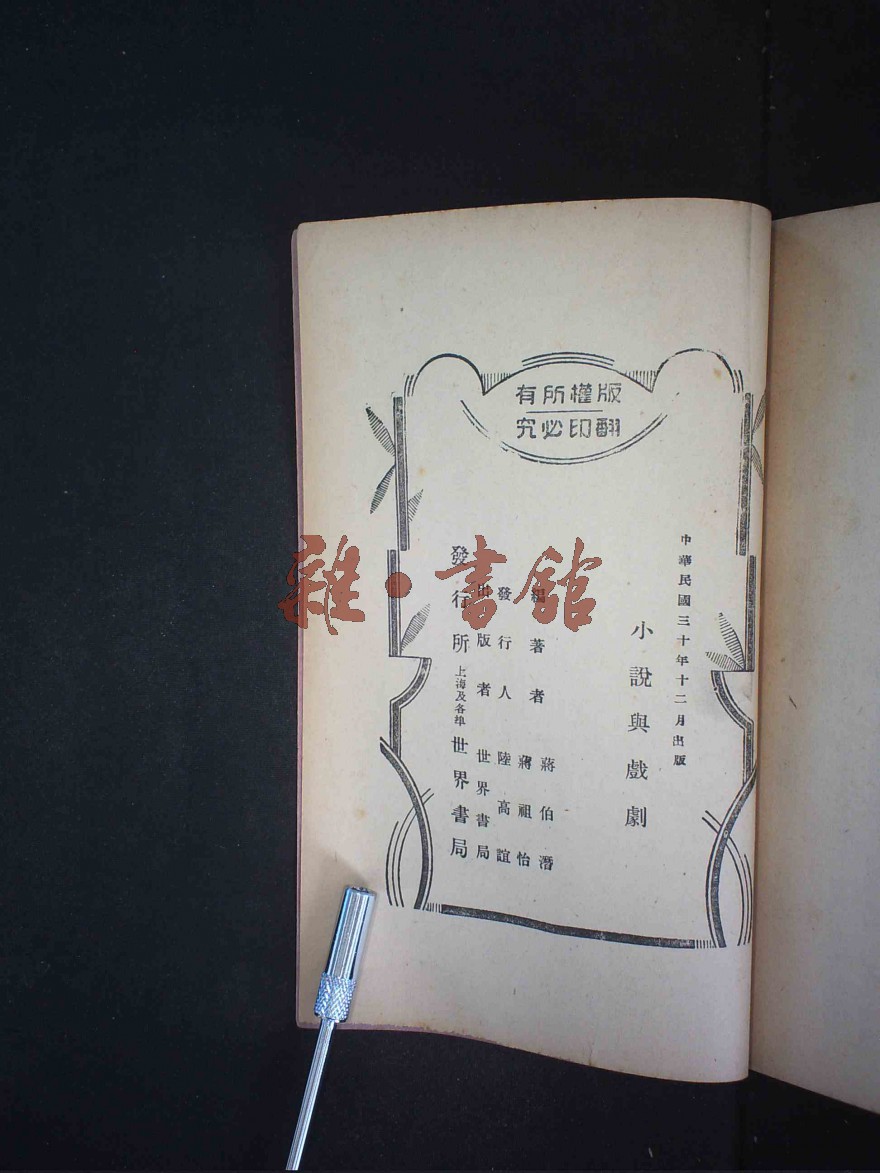 版權所有
翻印必究
中華民國三十年十二月出版
小說與戲劇
編著者 蔣伯潛 蔣祖怡
發行人 陸高誼
出版者 世界書局
發行所 上海及各埠 世界書局
雜·書館